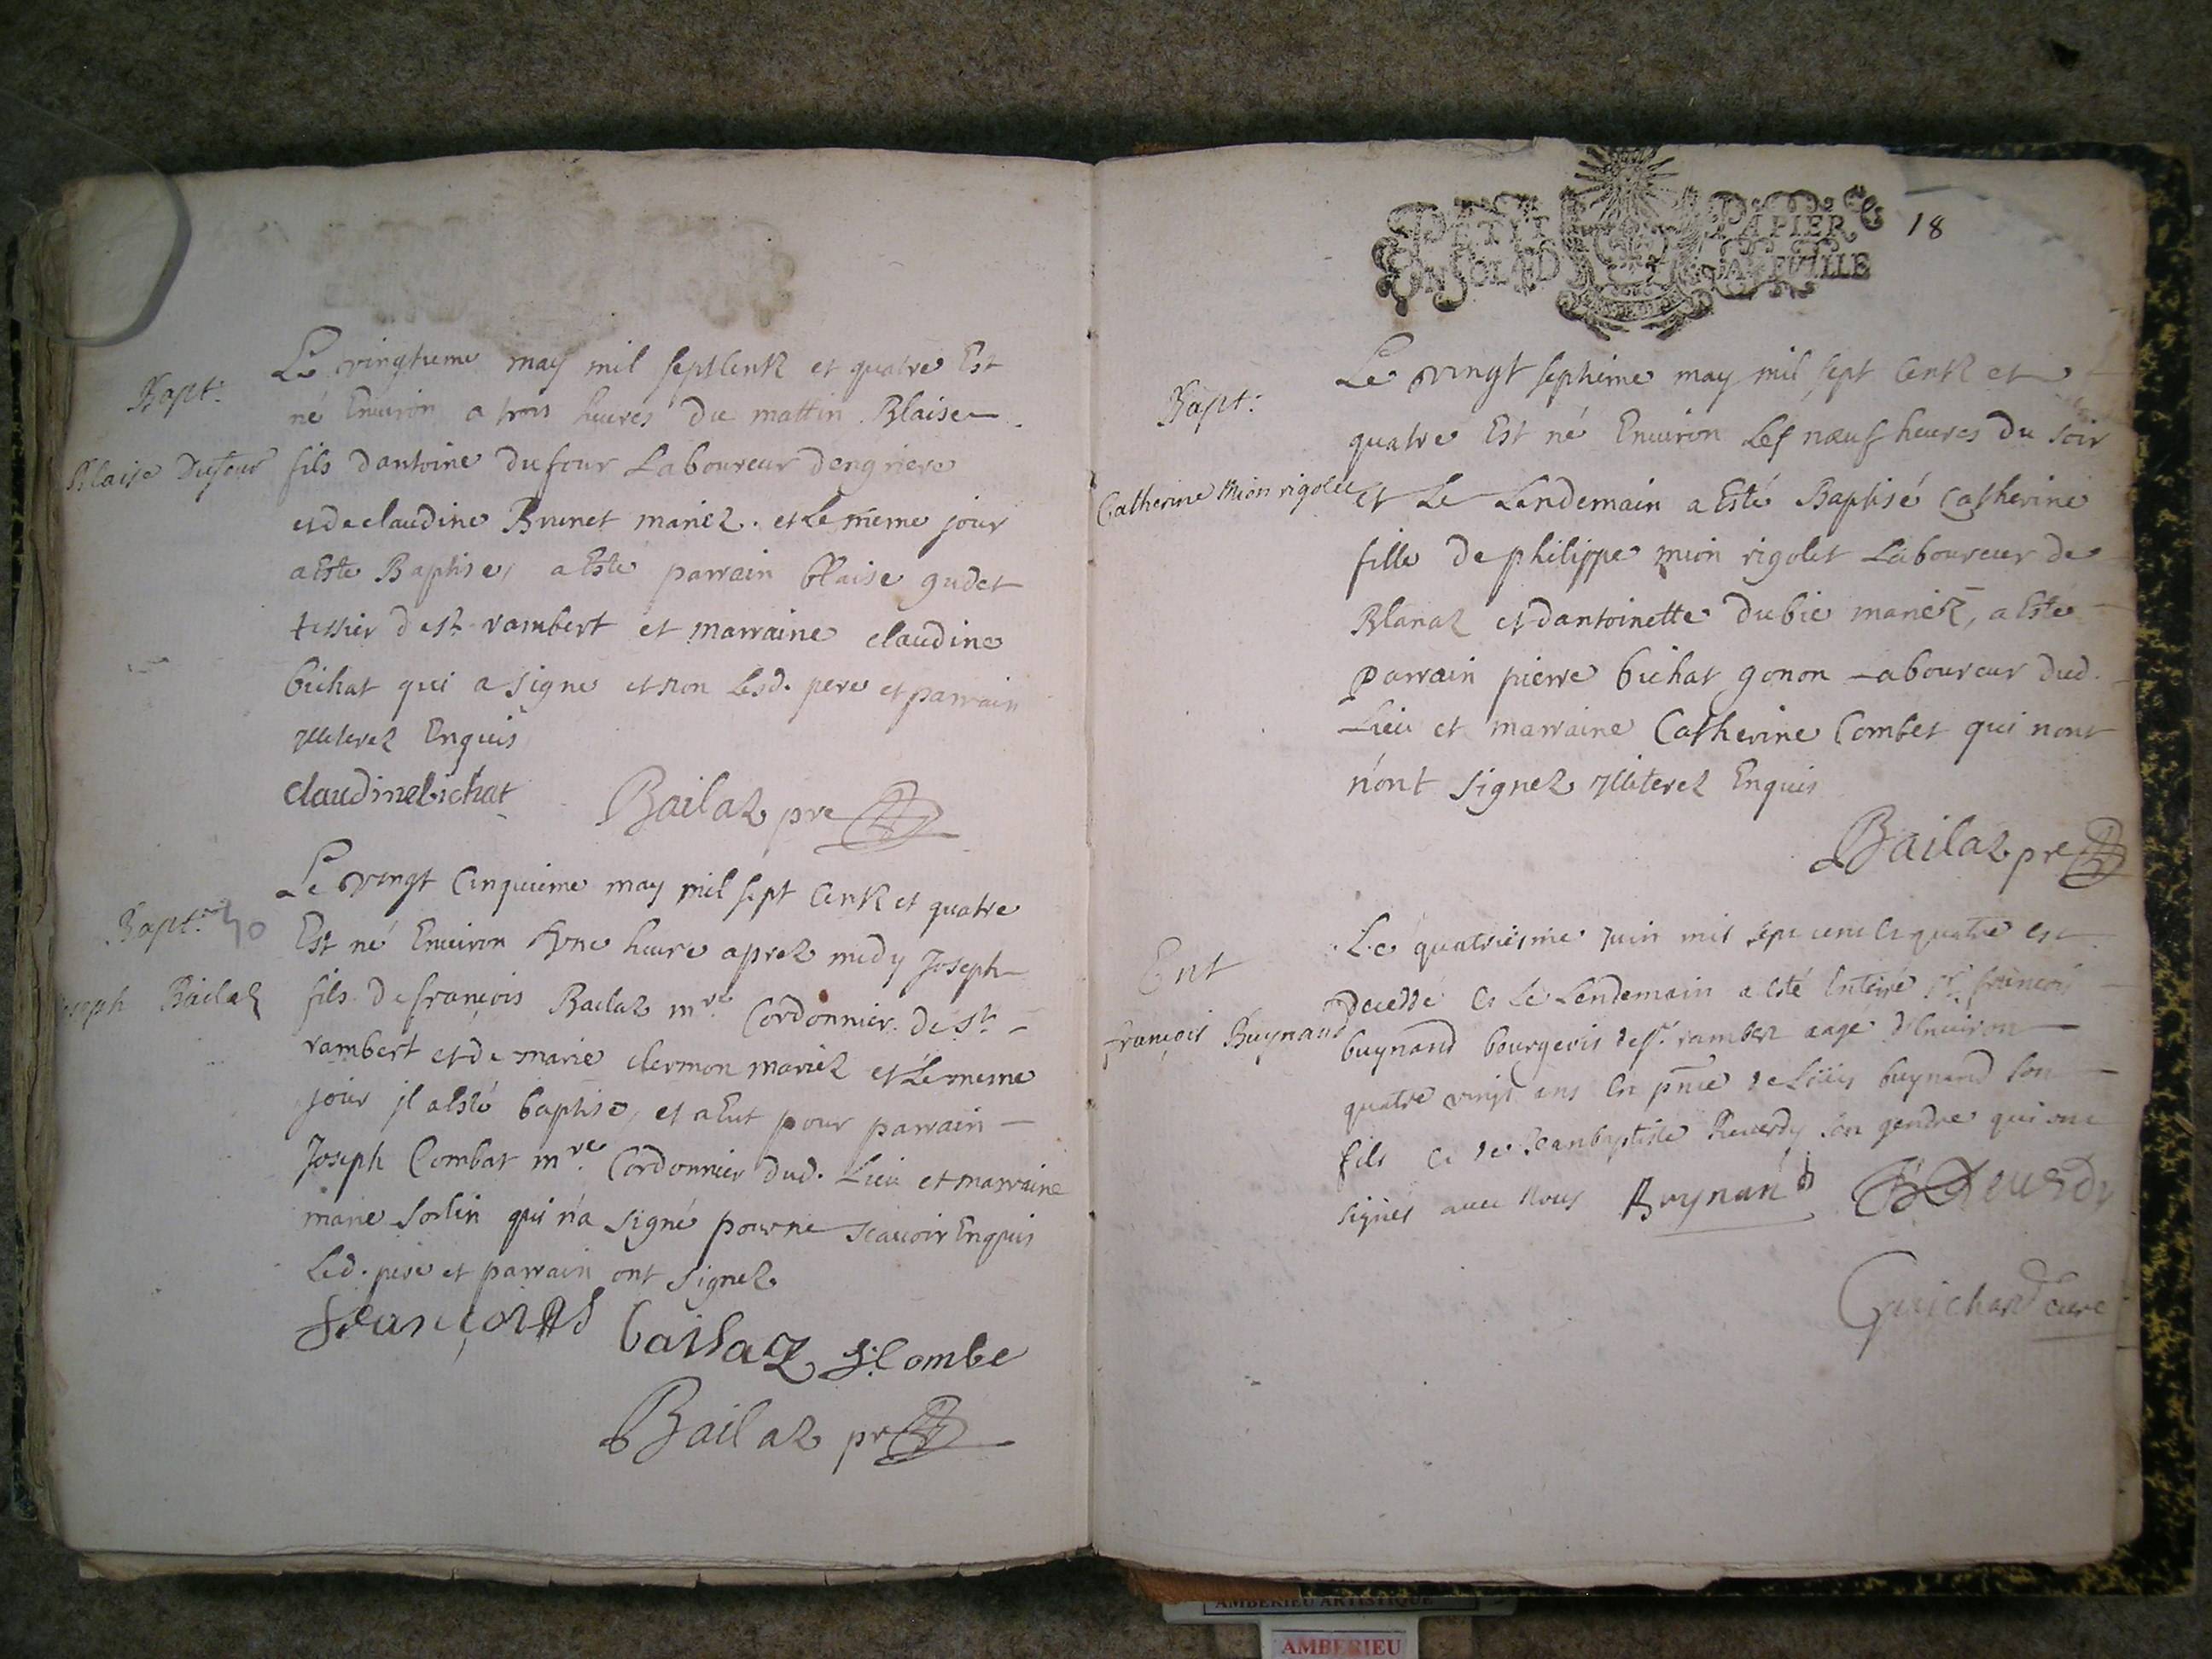 Bapt.
Blaise Dufour
Le vingtieme may mil sept Centz et quatre Est
né Enuiron a trois heures du mattin Blaise
fils d'antoine dufour Laboureur dengriere
et de claudine Brunet mariez. et Le meme jour
a Este Baptise, a Este parrain Blaise gudet
tessier de st. rambert et marraine claudine
bichat qui a signe et non Lesd. pere et parrain
ylliterez Enquis
claudine bichat Bailaz pre
Bapt. 40
Joseph Bailaz
Le vingt Cinquieme may mil sept Centz et quatre
Est né Enuiron hune heure aprez midy Joseph
fils de françois Bailaz mre. Cordonnier de st.
rambert et de marie clermon mariez et Le mesme
jour jl a Esté baptise, et a Eut pour parrain
Joseph Combat mre. Cordonnier dud. Lieu et marraine
marie Sorlin qui n'a signé pour ne scauoir Enquis
Led. pere et parrain ont signez
françois bailaz J. Combe
Bailaz pre
PETIT PAPIER 18
EN SOL LA FEVILLE
Bapt.
Catherine Mion rigolet
Le vingt septieme may mil sept Centz et
quatre Est né Enuiron Les nœuf heures du soir
et Le Lendemain a Esté Baptisé Catherine
fille de philippe mion rigolet Laboureur de
Blanaz et d'antoinette dubie mariez, a Esté
parrain pierre bichat gonon Laboureur dud.
Lieu et marraine Catherine Combet qui nont
n'ont signez ylliterez Enquis
Bailaz pre
Ent
françois Buynand
Le quatriesme juin mil sept cent et quatre est
decedé et Le Lendemain a esté Enterré sr. françois
buynand bourgeois de st. rambert aagé d'Enuiron
quatre vingt ans En pnce de Loüis buynand son
fils et de Jeanbaptiste Reuerdy son gendre qui ont
signes auec nous Buynand Reuerdy
Guichard curé
AMBERIEU ARTISTIQUE
AMBERIEU